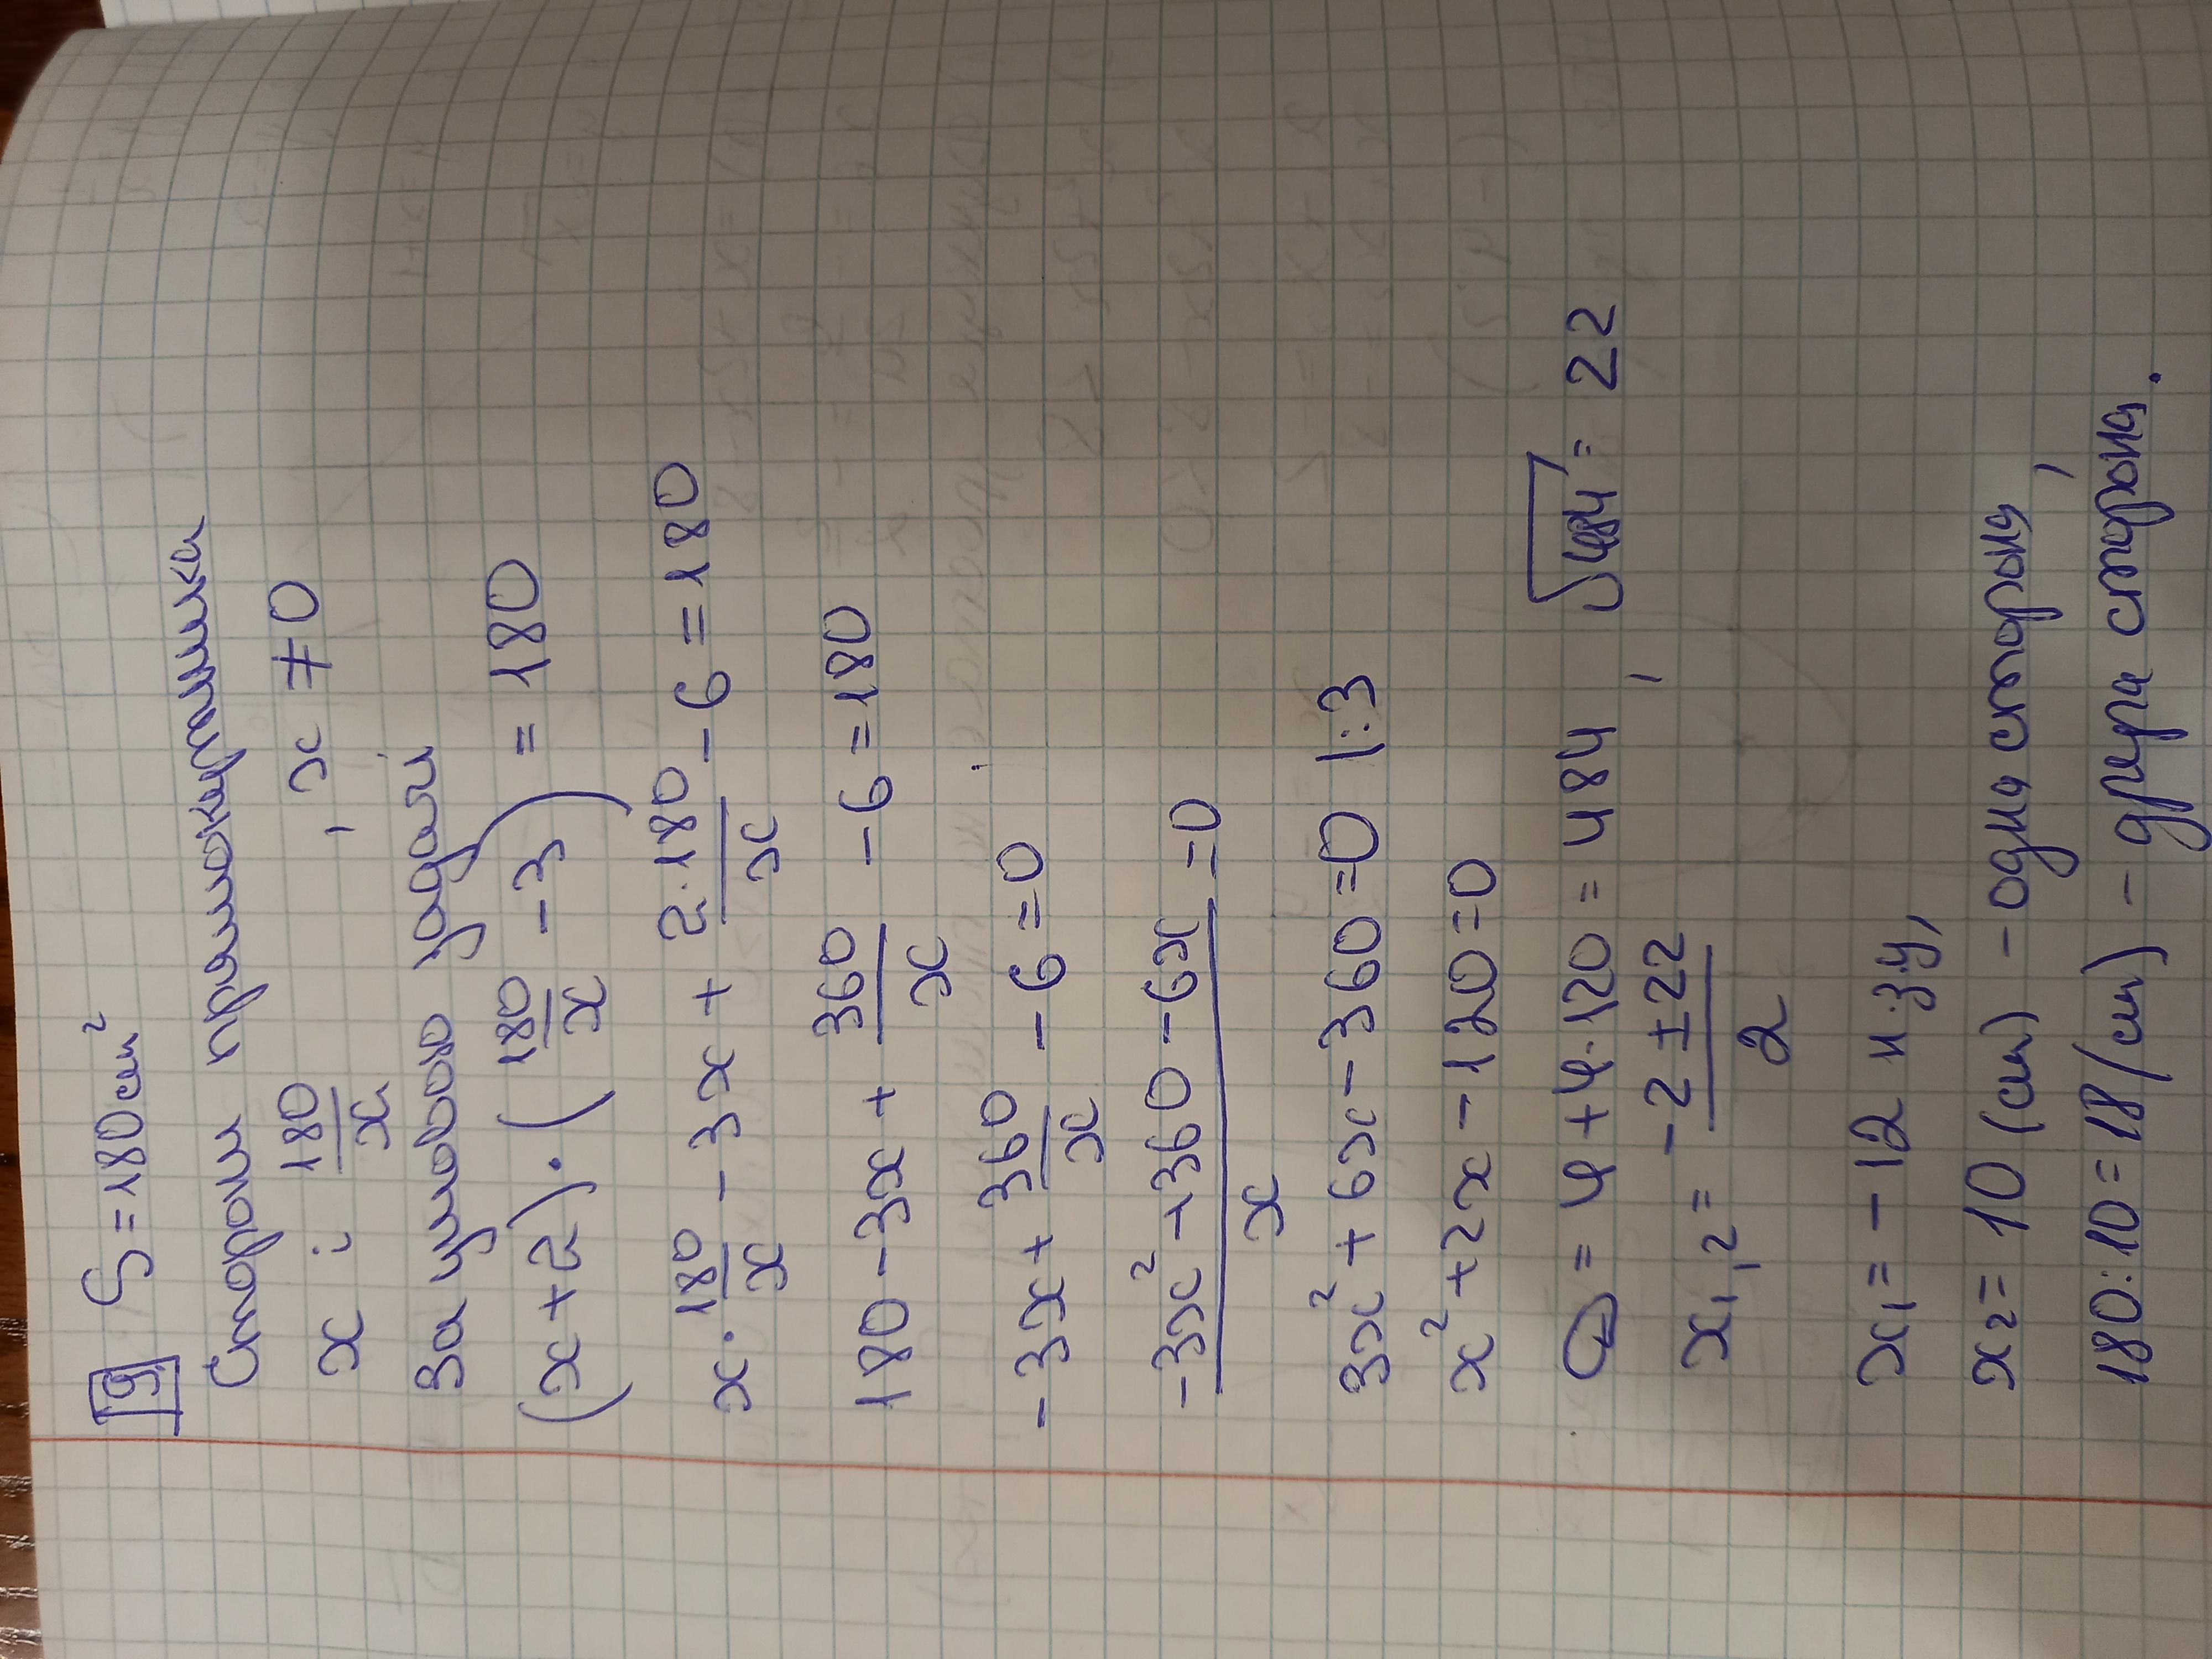 9 S=180см²
Сторони прямокутника
x і 180/x, x ≠ 0
За умовою задачі
(x+2)·(180/x -3) = 180
x·180/x - 3x + 2·180/x - 6 = 180
180 - 3x + 360/x - 6 = 180
-3x + 360/x - 6 = 0
(-3x² + 360 - 6x)/x = 0
3x² + 6x - 360 = 0 |:3
x² + 2x - 120 = 0
D = 4 + 4·120 = 484, √484 = 22
x₁,₂ = (-2 ± 22)/2
x₁ = -12 н.зу,
x₂ = 10 (см) - одна сторона,
180:10 = 18 (см) - друга сторона.